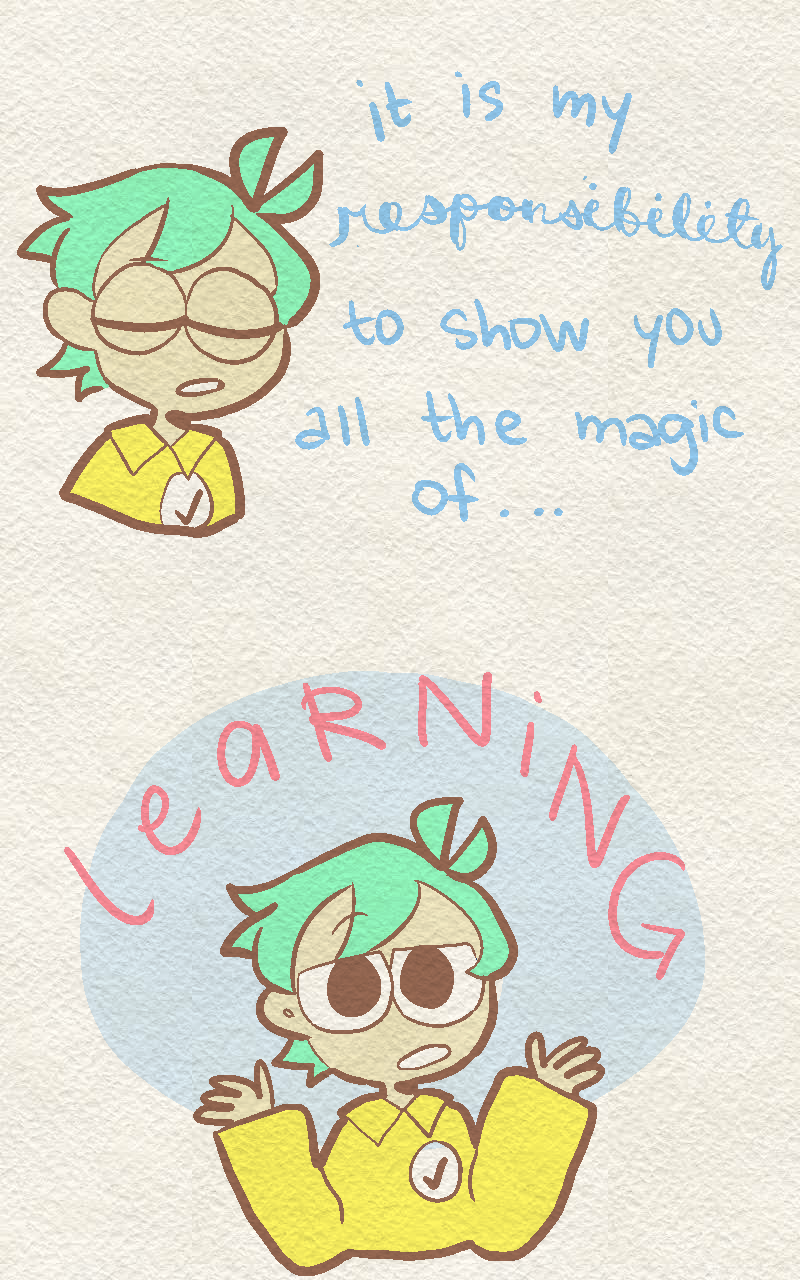 it is my
responsibility
to show you
all the magic
of...
leaRNiNG